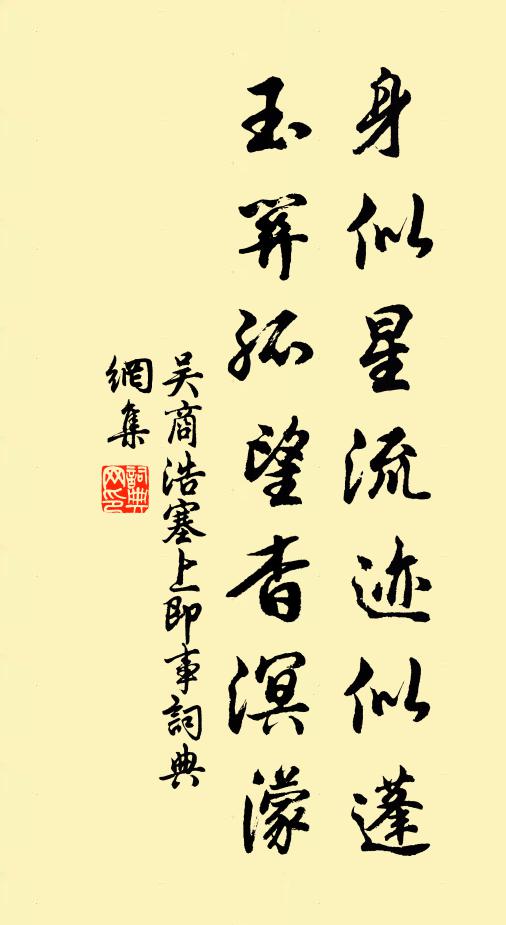 身似星流迹似蓬
玉關孤望杳溟濛
吴商浩塞上即事詞典
網集
詞典網印